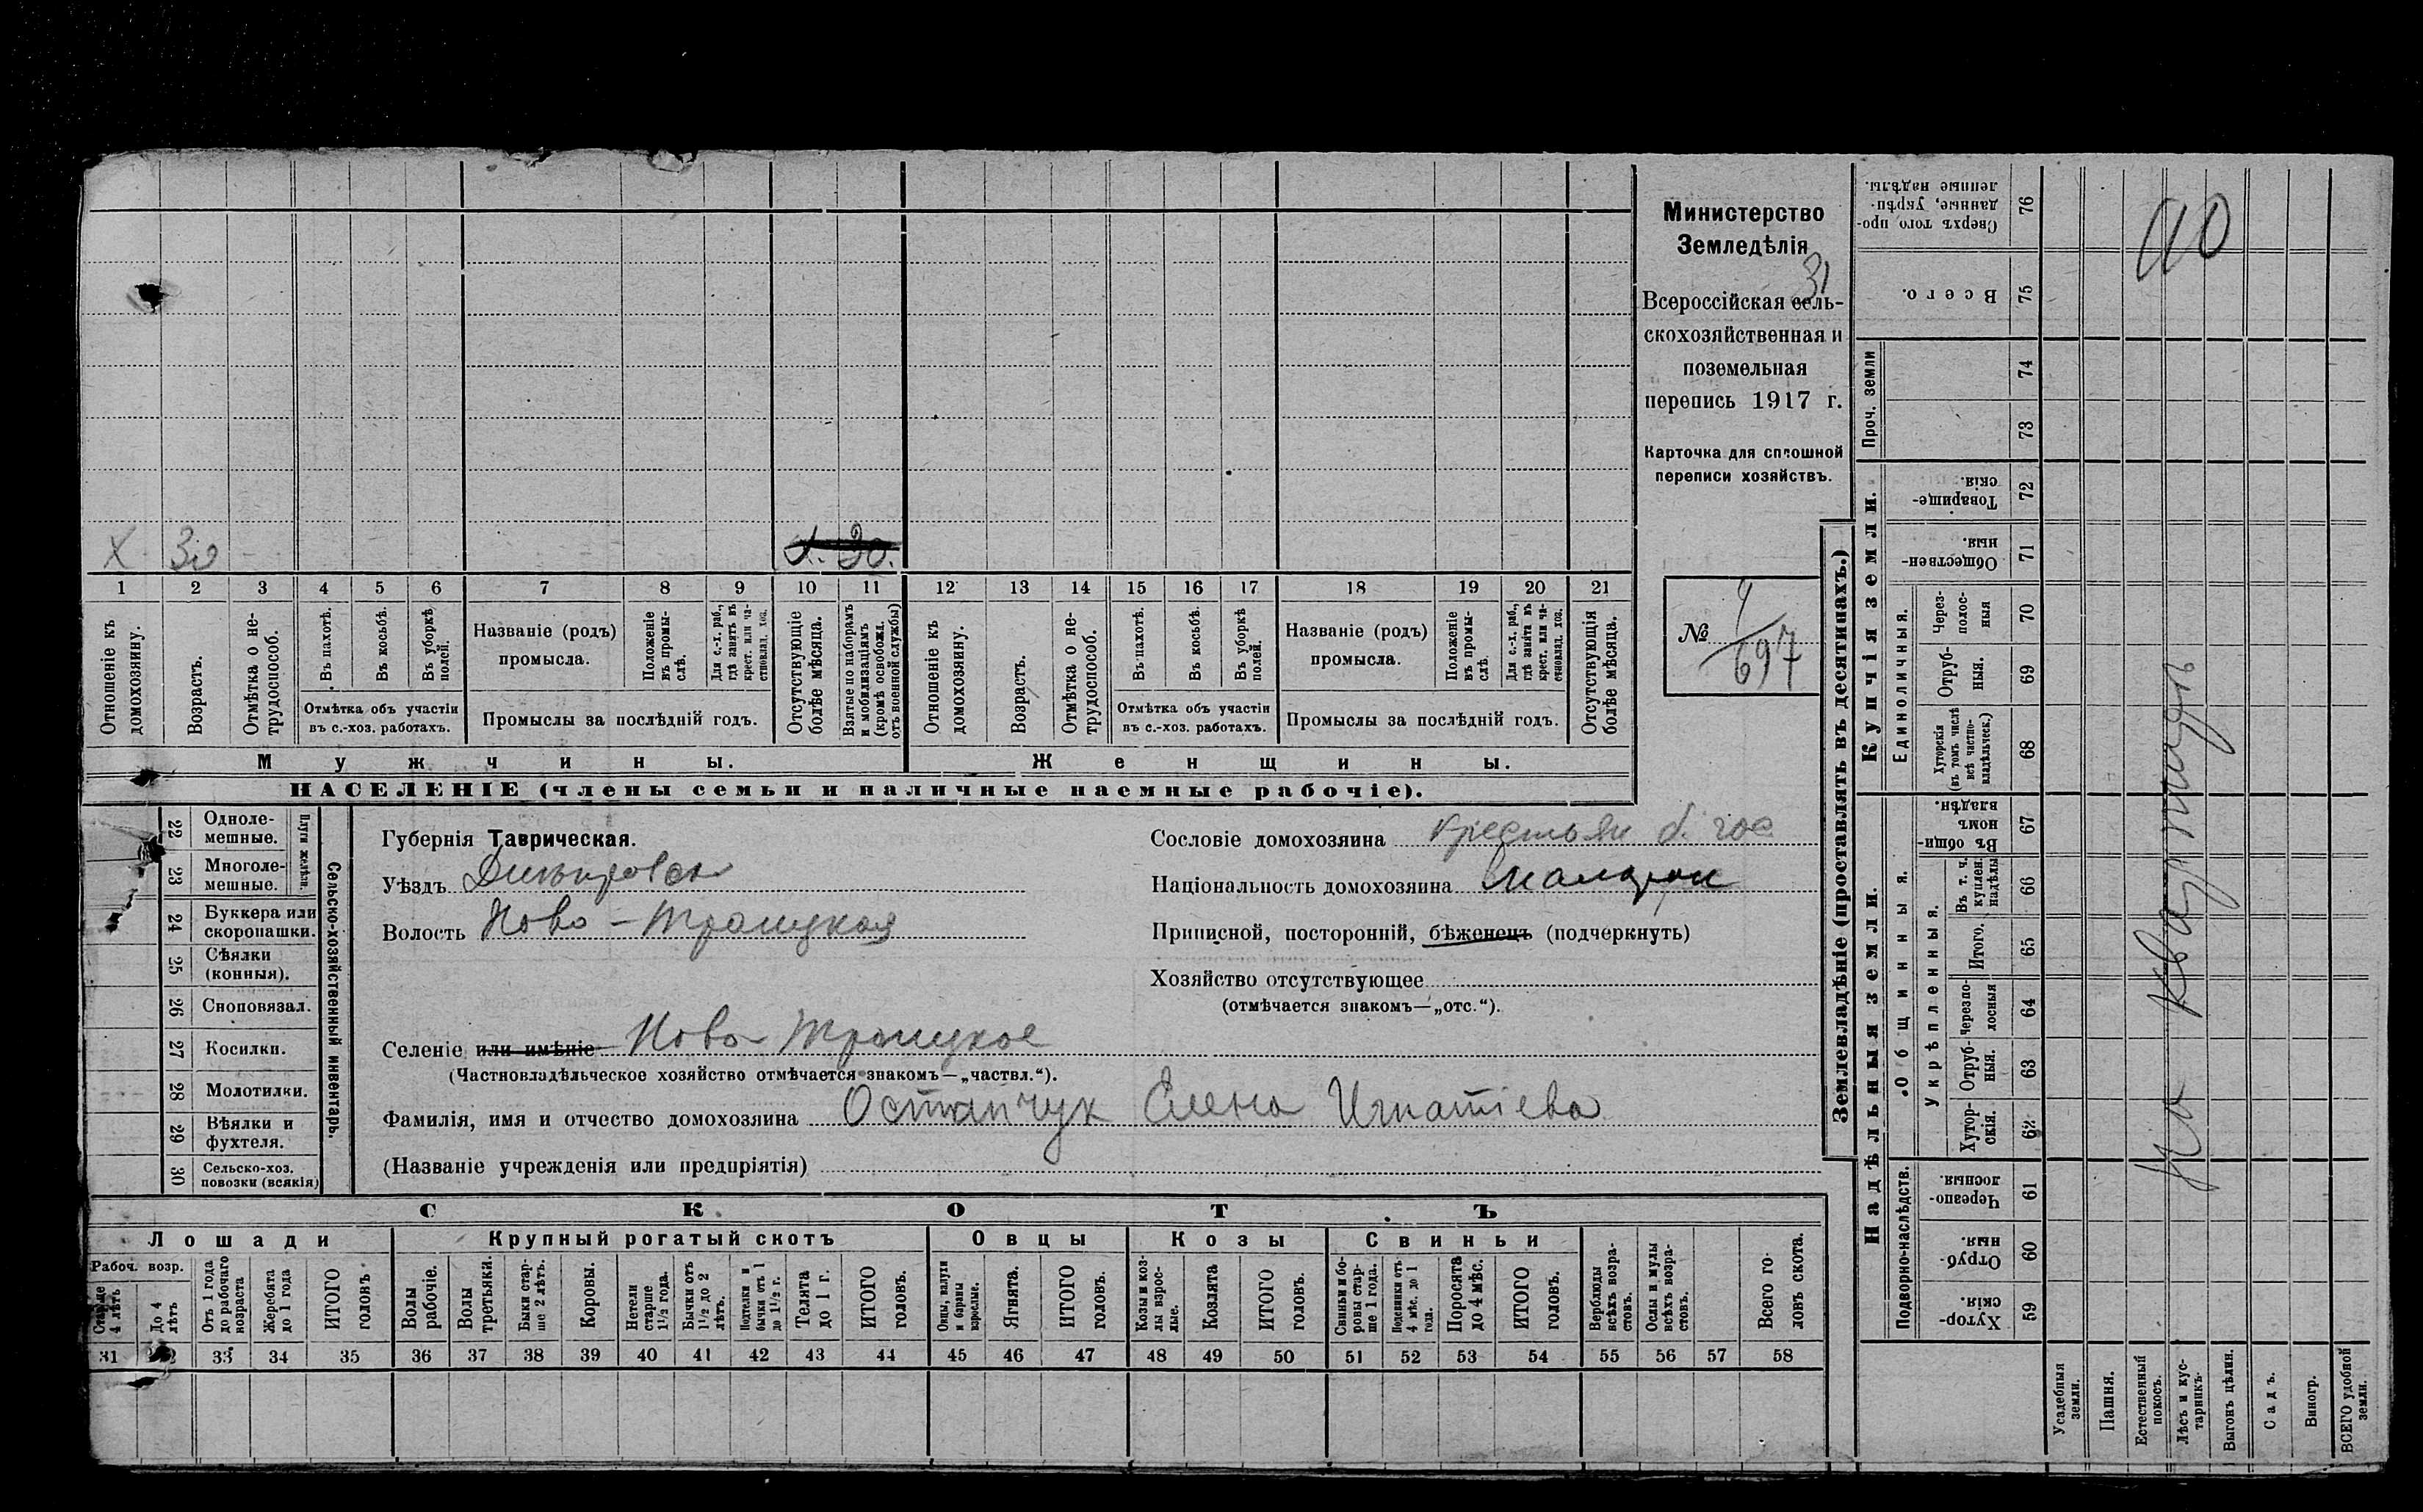 Министерство
Земледѣлія
31
Всероссійская сель-
скохозяйственная и
поземельная
перепись 1917 г.
Карточка для сплошной
переписи хозяйствъ.
№ 697
X 30
X. 30.
1 2 3 4 5 6 7 8 9 10 11 12 13 14 15 16 17 18 19 20 21
Отношеніе къ домохозяину.
Возрастъ.
Отмѣтка о нетрудоспособ.
Въ пахотѣ.
Въ косьбѣ.
Въ уборкѣ полей.
Отмѣтка объ участіи
въ с.-хоз. работахъ.
Названіе (родъ)
промысла.
Положеніе въ промыслѣ.
Для с.-х. раб., гдѣ занятъ въ крест. или частновлад. хоз.
Промыслы за послѣдній годъ.
Отсутствующіе болѣе мѣсяца.
Взятые по наборамъ и мобилизаціямъ (кромѣ освобожд. отъ военной службы)
Отношеніе къ домохозяину.
Возрастъ.
Отмѣтка о нетрудоспособ.
Въ пахотѣ.
Въ косьбѣ.
Въ уборкѣ полей.
Отмѣтка объ участіи
въ с.-хоз. работахъ.
Названіе (родъ)
промысла.
Положеніе въ промыслѣ.
Для с.-х. раб., гдѣ занята въ крест. или частновлад. хоз.
Промыслы за послѣдній годъ.
Отсутствующія болѣе мѣсяца.
Мужчины.
Женщины.
НАСЕЛЕНІЕ (члены семьи и наличные наемные рабочіе).
Сельско-хозяйственный инвентарь.
Плуги желѣзн.
22 Одноле-
мешные.
23 Многоле-
мешные.
24 Буккера или
скоропашки.
25 Сѣялки
(конныя).
26 Сноповязал.
27 Косилки.
28 Молотилки.
29 Вѣялки и
фухтеля.
30 Сельско-хоз.
повозки (всякія)
Губернія Таврическая.
Уѣздъ Днѣпровск
Волость Ново-Троицкая
Селеніе или имѣніе Ново-Троицкое
(Частновладѣльческое хозяйство отмѣчается знакомъ—„частвл.“).
Фамилія, имя и отчество домохозяина Остапчук Елена Игнатіева
(Названіе учрежденія или предпріятія)
Сословіе домохозяина крестьян б. гос
Національность домохозяина малорос
Приписной, посторонній, бѣженецъ (подчеркнуть)
Хозяйство отсутствующее
(отмѣчается знакомъ—„отс.“).
СКОТЪ
Лошади
Рабоч. возр.
Старше 4 лѣтъ
До 4 лѣтъ
Отъ 1 года до рабочаго возраста
Жеребята до 1 года
ИТОГО головъ
Крупный рогатый скотъ
Волы рабочіе.
Волы третьяки.
Быки старше 2 лѣтъ.
Коровы.
Нетели старше 1½ года.
Бычки отъ 1½ до 2 лѣтъ.
Подтелки и бычки отъ 1 до 1½ г.
Телята до 1 г.
ИТОГО головъ.
Овцы
Овцы, валухи и бараны взрослые.
Ягнята.
ИТОГО головъ.
Козы
Козы и козлы взрослые.
Козлята
ИТОГО головъ.
Свиньи
Свиньи и боровы старше 1 года.
Подсвинки отъ 4 мѣс. до 1 года.
Поросята до 4 мѣс.
ИТОГО головъ.
Верблюды всѣхъ возрастовъ.
Ослы и мулы всѣхъ возрастовъ.
Всего головъ скота.
31 32 33 34 35 36 37 38 39 40 41 42 43 44 45 46 47 48 49 50 51 52 53 54 55 56 57 58
Землевладѣніе (проставлять въ десятинахъ.)
Надѣльныя земли.
Подворно-наслѣдств.
Хуторскія. 59
Отрубныя. 60
Черезполосныя. 61
Общинныя.
Укрѣпленныя.
Хуторскія. 62
Отрубныя. 63
Черезполосныя 64
Итого. 65
Въ т. ч. куплен. надѣлы 66
Въ общинномъ владѣн. 67
Купчія земли.
Единоличныя.
Хуторскія (въ томъ числѣ всѣ частновладѣльческ.) 68
Отрубныя. 69
Черезполосныя 70
Общественныя. 71
Товарищескія. 72
Проч. земли
73
74
Всего. 75
Сверхъ того проданные, укрѣпленные надѣлы. 76
На квартире
Усадебныя земли.
Пашня.
Естественный покосъ.
Лѣсъ и кустарникъ.
Выгонъ цѣлин.
Садъ.
Виногр.
ВСЕГО удобной земли.